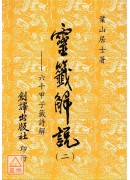 葉山居士著
靈籤解説(二)
——六十甲子籤詩解
創譯出版社 印行